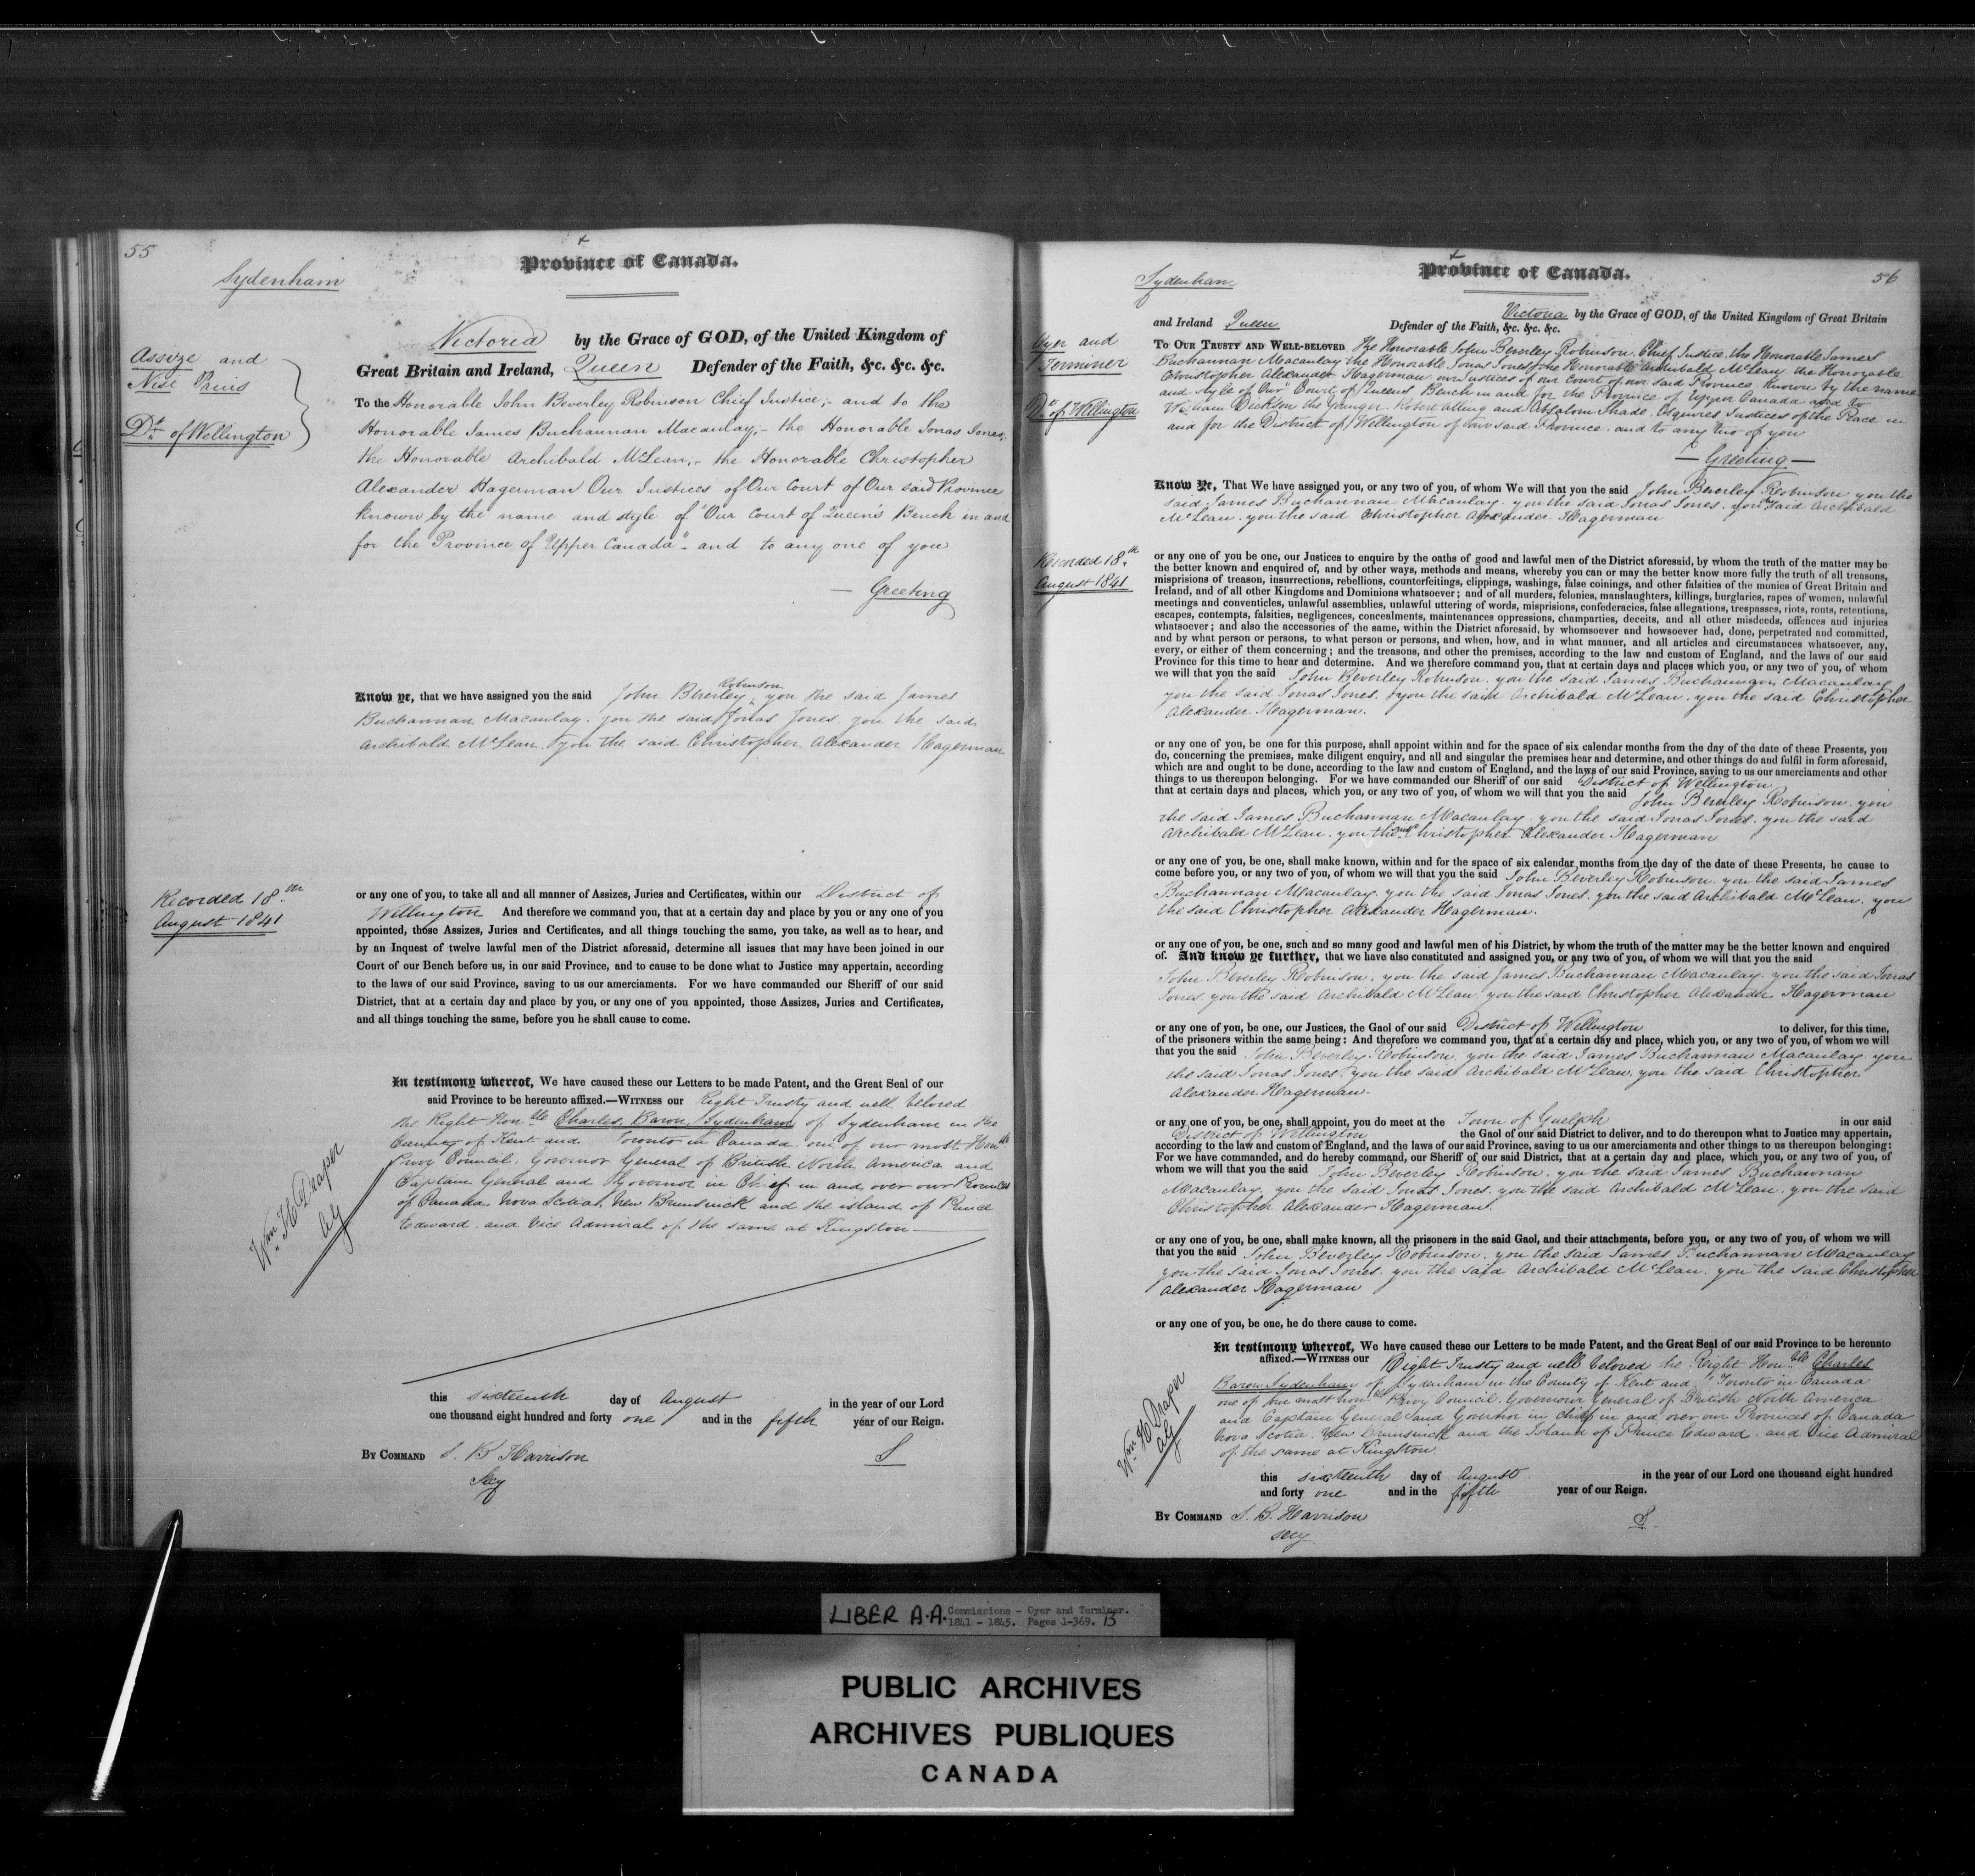 55
Province of Canada.
Sydenham
Victoria by the Grace of GOD, of the United Kingdom of
Great Britain and Ireland, Queen Defender of the Faith, &c. &c. &c.
Assize and
Nisi Prius
Dt. of Wellington
To the Honorable John Beverley Robinson Chief Justice;- and to the
Honorable James Buchannan Macaulay;- the Honorable Jonas Jones;
the Honorable Archibald McLean;- the Honorable Christopher
Alexander Hagerman Our Justices of Our Court of Our said Province
known by the name and style of "Our Court of Queen's Bench in and
for the Province of Upper Canada" and to any one of you
— Greeting
Know ye, that we have assigned you the said John Beverley Robinson, you the said James
Buchannan Macaulay. you the said Jonas Jones. you the said
Archibald McLean. you the said Christopher Alexander Hagerman
Recorded 18th
August 1841
or any one of you, to take all and all manner of Assizes, Juries and Certificates, within our District of
Wellington And therefore we command you, that at a certain day and place by you or any one of you
appointed, those Assizes, Juries and Certificates, and all things touching the same, you take, as well as to hear, and
by an Inquest of twelve lawful men of the District aforesaid, determine all issues that may have been joined in our
Court of our Bench before us, in our said Province, and to cause to be done what to Justice may appertain, according
to the laws of our said Province, saving to us our amerciaments. For we have commanded our Sheriff of our said
District, that at a certain day and place by you, or any one of you appointed, those Assizes, Juries and Certificates,
and all things touching the same, before you he shall cause to come.
In testimony whereof, We have caused these our Letters to be made Patent, and the Great Seal of our
said Province to be hereunto affixed.—WITNESS our Right Trusty and well beloved
the Right Honble Charles, Baron, Sydenham of Sydenham in the
County of Kent and Toronto in Canada. one of our most Honble
Privy Council. Governor General of British North America and
Captain General and Governor in Chief in and over our Provinces
of Canada Nova Scotia, New Brunswick and the island of Prince
Edward. and Vice Admiral of the same at Kingston
Wm. H. Draper
Atty
this sixteenth day of August in the year of our Lord
one thousand eight hundred and forty one and in the fifth year of our Reign.
BY COMMAND S. B Harrison S
Secy
56
Province of Canada.
Sydenham
Victoria by the Grace of GOD, of the United Kingdom of Great Britain
and Ireland Queen Defender of the Faith, &c. &c. &c.
Oyer and
Terminer
Dt. of Wellington
TO OUR TRUSTY AND WELL-BELOVED The Honorable John Beverley Robinson. Chief Justice, the Honorable James
Buchannan Macaulay the Honorable Jonas Jones, the Honorable Archibald McLean, the Honorable
Christopher Alexander Hagerman our Justices of our Court of our said Province known by the name
and style of "Our Court of Queens Bench in and for the Province of Upper Canada and to
William Dickson the Younger. Robert Alling and Absalom Shade. Esquires Justices of the Peace in
and for the District of Wellington of our said Province. and to any two of you
— Greeting —
Know Ye, That We have assigned you, or any two of you, of whom We will that you the said John Beverley Robinson you the
said James Buchannan Macaulay. you the said Jonas Jones. you the said Archibald
McLean. you the said Christopher Alexander Hagerman
Recorded 18th
August 1841
or any one of you be one, our Justices to enquire by the oaths of good and lawful men of the District aforesaid, by whom the truth of the matter may be
the better known and enquired of, and by other ways, methods and means, whereby you can or may the better know more fully the truth of all treasons,
misprisions of treason, insurrections, rebellions, counterfeitings, clippings, washings, false coinings, and other falsities of the monies of Great Britain and
Ireland, and of all other Kingdoms and Dominions whatsoever; and of all murders, felonies, manslaughters, killings, burglaries, rapes of women, unlawful
meetings and conventicles, unlawful assemblies, unlawful uttering of words, misprisions, confederacies, false allegations, trespasses, riots, routs, retentions,
escapes, contempts, falsities, negligences, concealments, maintenances oppressions, champarties, deceits, and all other misdeeds, offences and injuries
whatsoever; and also the accessories of the same, within the District aforesaid, by whomsoever and howsoever had, done, perpetrated and committed,
and by what person or persons, to what person or persons, and when, how, and in what manner, and all articles and circumstances whatsoever, any,
every, or either of them concerning; and the treasons, and other the premises, according to the law and custom of England, and the laws of our said
Province for this time to hear and determine. And we therefore command you, that at certain days and places which you, or any two of you, of whom
we will that you the said John Beverley Robinson. you the said James Buchannan Macaulay
you the said Jonas Jones. you the said Archibald McLean. you the said Christopher
Alexander Hagerman.
or any one of you, be one for this purpose, shall appoint within and for the space of six calendar months from the day of the date of these Presents, you
do, concerning the premises, make diligent enquiry, and all and singular the premises hear and determine, and other things do and fulfil in form aforesaid,
which are and ought to be done, according to the law and custom of England, and the laws of our said Province, saving to us our amerciaments and other
things to us thereupon belonging. For we have commanded our Sheriff of our said District of Wellington
that at certain days and places, which you, or any two of you, of whom we will that you the said John Beverley Robinson. you
the said James Buchannan Macaulay. you the said Jonas Jones. you the said
Archibald McLean. you the said Christopher Alexander Hagerman
or any one of you, be one, shall make known, within and for the space of six calendar months from the day of the date of these Presents, he cause to
come before you, or any two of you, of whom we will that you the said John Beverley Robinson. you the said James
Buchannan Macaulay. you the said Jonas Jones. you the said Archibald McLean. you
the said Christopher Alexander Hagerman.
or any one of you, be one, such and so many good and lawful men of his District, by whom the truth of the matter may be the better known and enquired
of. And know ye further, that we have also constituted and assigned you, or any two of you, of whom we will that you the said
John Beverley Robinson. you the said James Buchannan Macaulay. you the said Jonas
Jones. you the said Archibald McLean. you the said Christopher Alexander Hagerman
or any one of you, be one, our Justices, the Gaol of our said District of Wellington to deliver, for this time,
of the prisoners within the same being: And therefore we command you, that at a certain day and place, which you, or any two of you, of whom we will
that you the said John Beverley Robinson. you the said James Buchannan Macaulay. you
the said Jonas Jones. you the said Archibald McLean. you the said Christopher
Alexander Hagerman.
or any one of you, be one, shall appoint, you do meet at the Town of Guelph in our said
District of Wellington the Gaol of our said District to deliver, and to do thereupon what to Justice may appertain,
according to the law and custom of England, and the laws of our said Province, saving to us our amerciaments and other things to us thereupon belonging:
For we have commanded, and do hereby command, our Sheriff of our said District, that at a certain day and place, which you, or any two of you, of
whom we will that you the said John Beverley Robinson. you the said James Buchannan
Macaulay. you the said Jonas Jones. you the said Archibald McLean. you the said
Christopher Alexander Hagerman.
or any one of you, be one, shall make known, all the prisoners in the said Gaol, and their attachments, before you, or any two of you, of whom we will
that you the said John Beverley Robinson. you the said James Buchannan Macaulay
you the said Jonas Jones. you the said Archibald McLean. you the said Christopher
Alexander Hagerman
or any one of you, be one, he do there cause to come.
In testimony whereof, We have caused these our Letters to be made Patent, and the Great Seal of our said Province to be hereunto
affixed.—WITNESS our Right Trusty and well beloved the Right Honble Charles
Baron Sydenham of Sydenham in the County of Kent and Toronto in Canada
one of our most honble Privy Council. Governour General of British North America
and Captain General and Governor in chief in and over our Provinces of Canada
Nova Scotia. New Brunswick and the Island of Prince Edward. and Vice Admiral
of the same at Kingston.
Wm. H. Draper
Atty
this sixteenth day of August in the year of our Lord one thousand eight hundred
and forty one and in the fifth year of our Reign.
BY COMMAND S. B. Harrison S.
Secy
LIBER A.A. Commissions - Oyer and Terminer.
1841 - 1845. Pages 1-369. 13
PUBLIC ARCHIVES
ARCHIVES PUBLIQUES
CANADA